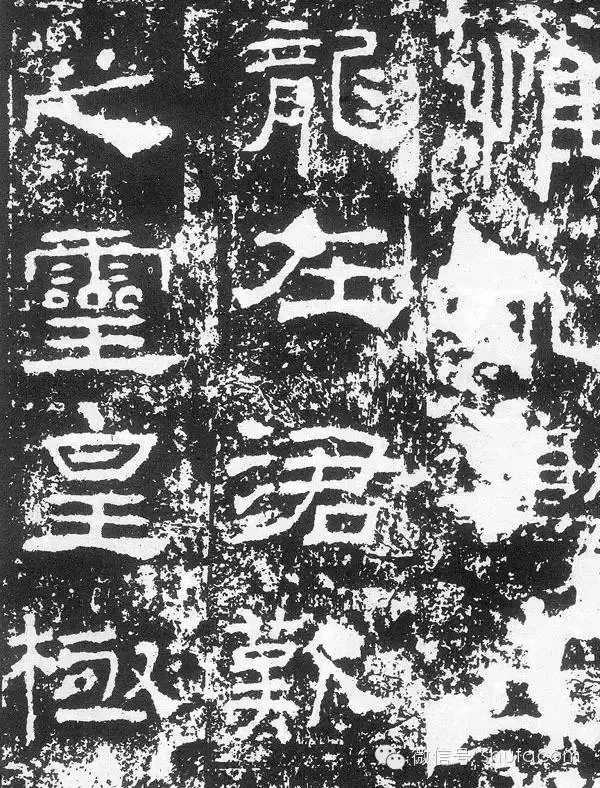 惟
龍在涒歎
之靈皇極
微信号: shufacom